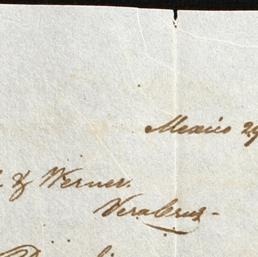 Mexico 29
& Werner.
Veracruz-